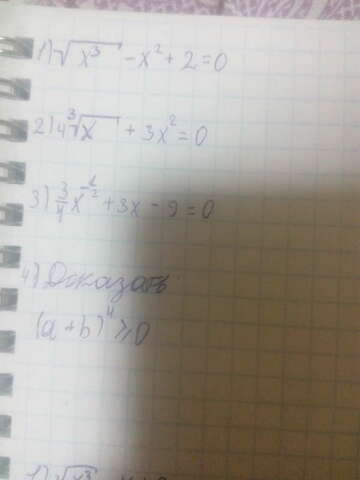 1) √x³ - x² + 2 = 0
2) 4∛x + 3x² = 0
3) 3/4 x^(-1/2) + 3x - 9 = 0
4) Доказать:
(a + b)⁴ ≥ 0
1) √x³